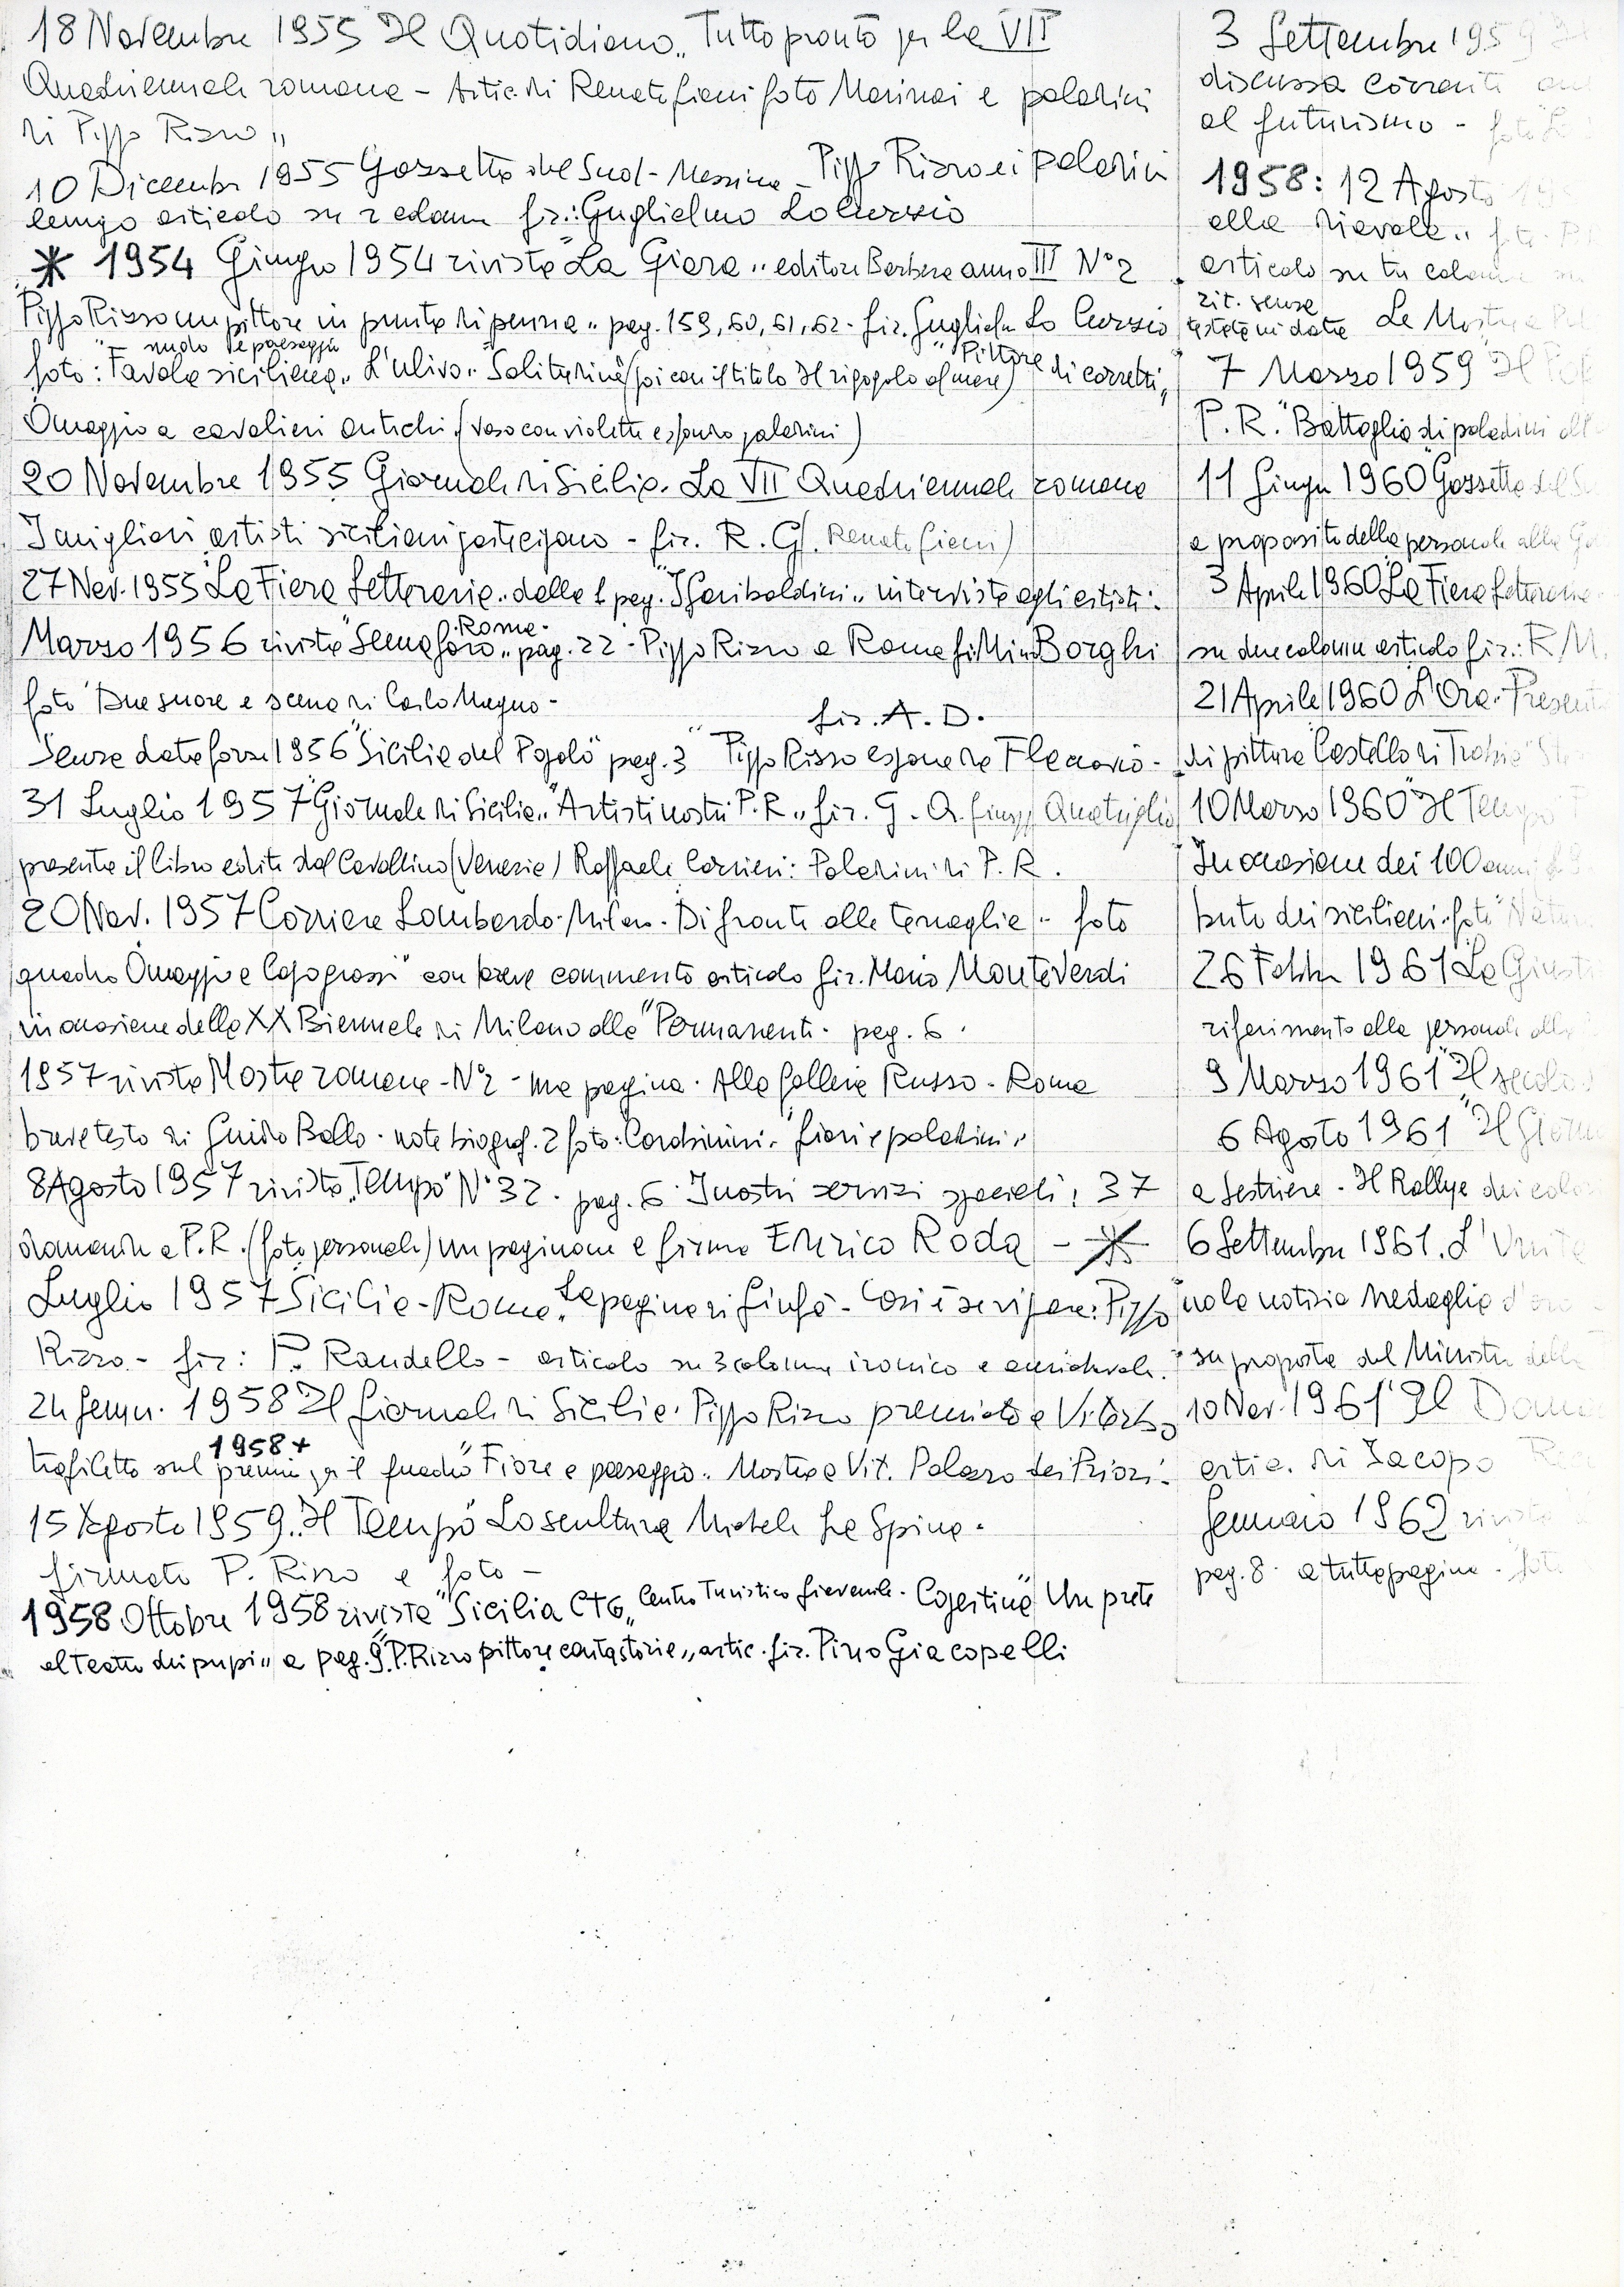 18 Novembre 1955 Il Quotidiano „ Tutto pronto per la VII
Quadriennale romana - Artic. di Renata foto Marinai e paladini
di Pippo Rizzo „
10 Dicembre 1955 Gazzetta del Sud - Messina - Pippo Rizzo e i paladini
lungo articolo su 2 colonne fir.: Guglielmo Lo Curzio
* 1954 Giugno 1954 rivista "La Giara „ editore Barbera anno III N° 2
Pippo Rizzo un pittore in punta di penna „ pag. 159, 60, 61, 62 - fir. Guglielmo Lo Curzio
nudo e paesaggio
foto: "Favola siciliana „ L'ulivo „ Solitudine (poi con il titolo Il rigogolo al mare) "Pittore di carretti „
Omaggio a cavalieri antichi (vaso con violette e sfondo paladini)
20 Novembre 1955 Giornale di Sicilia. La VII Quadriennale romana
I migliori artisti siciliani partecipano - fir. R. G. (Renata
27 Nov. 1955 "La Fiera Letteraria „ della 1 pag. "I Garibaldini „ interviste agli artisti.
Roma.
Marzo 1956 rivista "Semaforo „ pag. 22 - Pippo Rizzo a Roma fir. Mino Borghi
foto "Due suore e scena di Carlo Magno -
fir. A. D.
Senza data forse 1956 "Sicilia del Popolo" pag. 3 "Pippo Rizzo espone da Flaccovio -
31 Luglio 1957 "Giornale di Sicilia „ "Artisti nostri P. R. „ fir. G. Q. Giuseppe Quatriglio
presenta il libro edito dal Cavallino (Venezia) Raffaele Carrieri: Paladini di P. R.
20 Nov. 1957 Corriere Lombardo - Milano - Di fronte alle tenaglie - foto
quadro "Omaggio a Capogrossi" con breve commento articolo fir. Mario Monteverdi
in occasione della XX Biennale di Milano alla "Permanente - pag. 6.
1957 rivista Mostre romane - N° 2 - una pagina - Alla Galleria Russo - Roma
breve testo di Guido Ballo - note biograf. 2 foto: Contadini „ "fiori e paladini „
8 Agosto 1957 rivista „ Tempo" N° 32 - pag. 6 I nostri servizi speciali: 37
domande a P. R. (foto personale) un paginone a firma Enrico Roda - *
Luglio 1957 Sicilia - Roma „ La pagina di Giufà - Così è se vi pare: Pippo
Rizzo - fir: P. Randello - articolo su 3 colonne ironico e amichevole.
24 Genn. 1958 Il Giornale di Sicilia. Pippo Rizzo premiato a Viterbo
1958 +
trafiletto sul premio per il quadro "Fiore e paesaggio. Mostra a Vit. Palazzo dei Priori.
15 Agosto 1959 „ Il Tempo" La scultura Michele La Spina.
firmato P. Rizzo e foto -
1958 Ottobre 1958 rivista "Sicilia CTG „ Centro Turistico Giovanile - Copertina "Un prete
al teatro dei pupi „ a pag. 9 "P. Rizzo pittore cantastorie „ artic. fir. Pino Giacopelli
3 Settembre 1959 Il
discussa corrente
al futurismo - foto
1958: 12 Agosto
alla rivale „
articolo su tre colonne
rit. senza
testata di data La Mostra
7 Marzo 1959 Il
P. R. "Battaglia di paladini
11 Giugno 1960 Gazzetta del
a proposito della personale alla
3 Aprile 1960 "La Fiera Letteraria
su due colonne articolo fir.: R. M.
21 Aprile 1960 L'Ora.
di pittura "Castello di Trabia"
10 Marzo 1960 "Il Tempo
In occasione dei 100 anni
buto dei siciliani - foto
26 Febbr. 1961 "La
riferimento alla personale
9 Marzo 1961 "Il secolo
6 Agosto 1961 "Il
a Sestriere - Il Rallye dei
6 Settembre 1961. L'
nola notizia medaglia d'oro
su proposta del Ministro della
10 Nov. 1961 "Il
artic. di Jacopo
Gennaio 1962 rivista
pag. 8 - a tutta pagina - foto